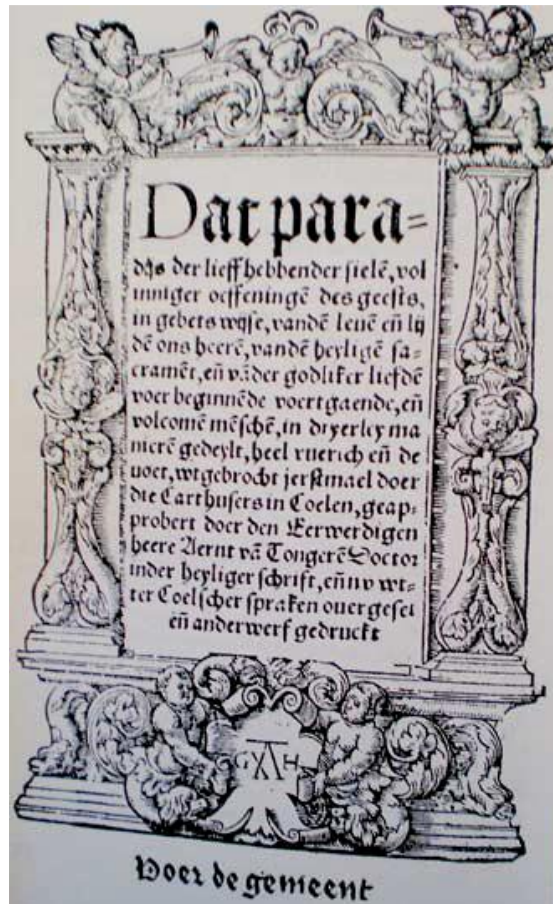 Dat para=
dijs der lieffhebbender sielẽ, vol
inniger oeffeningẽ des geests,
in gebets wyse, vandẽ leuẽ eñ lij
dẽ ons heerẽ, vandẽ heyligẽ sa=
cramẽt, eñ vãder godliker liefdẽ
voer beginnẽde voertgaende, eñ
volcomẽ mẽschẽ, in dryerley ma
nierẽ gedeylt, heel vuerich eñ de
uoet, wtgebrocht jerstmael doer
die Carthusers in Coelen, geap=
probert doer den Eerwerdigen
heere Aernt vã Tongerẽ Doctor
inder heyliger schrift, eñ nv wt=
ter Coelscher spraken ouergeset
eñ anderwerf gedruckt
G H
Voer de gemeent